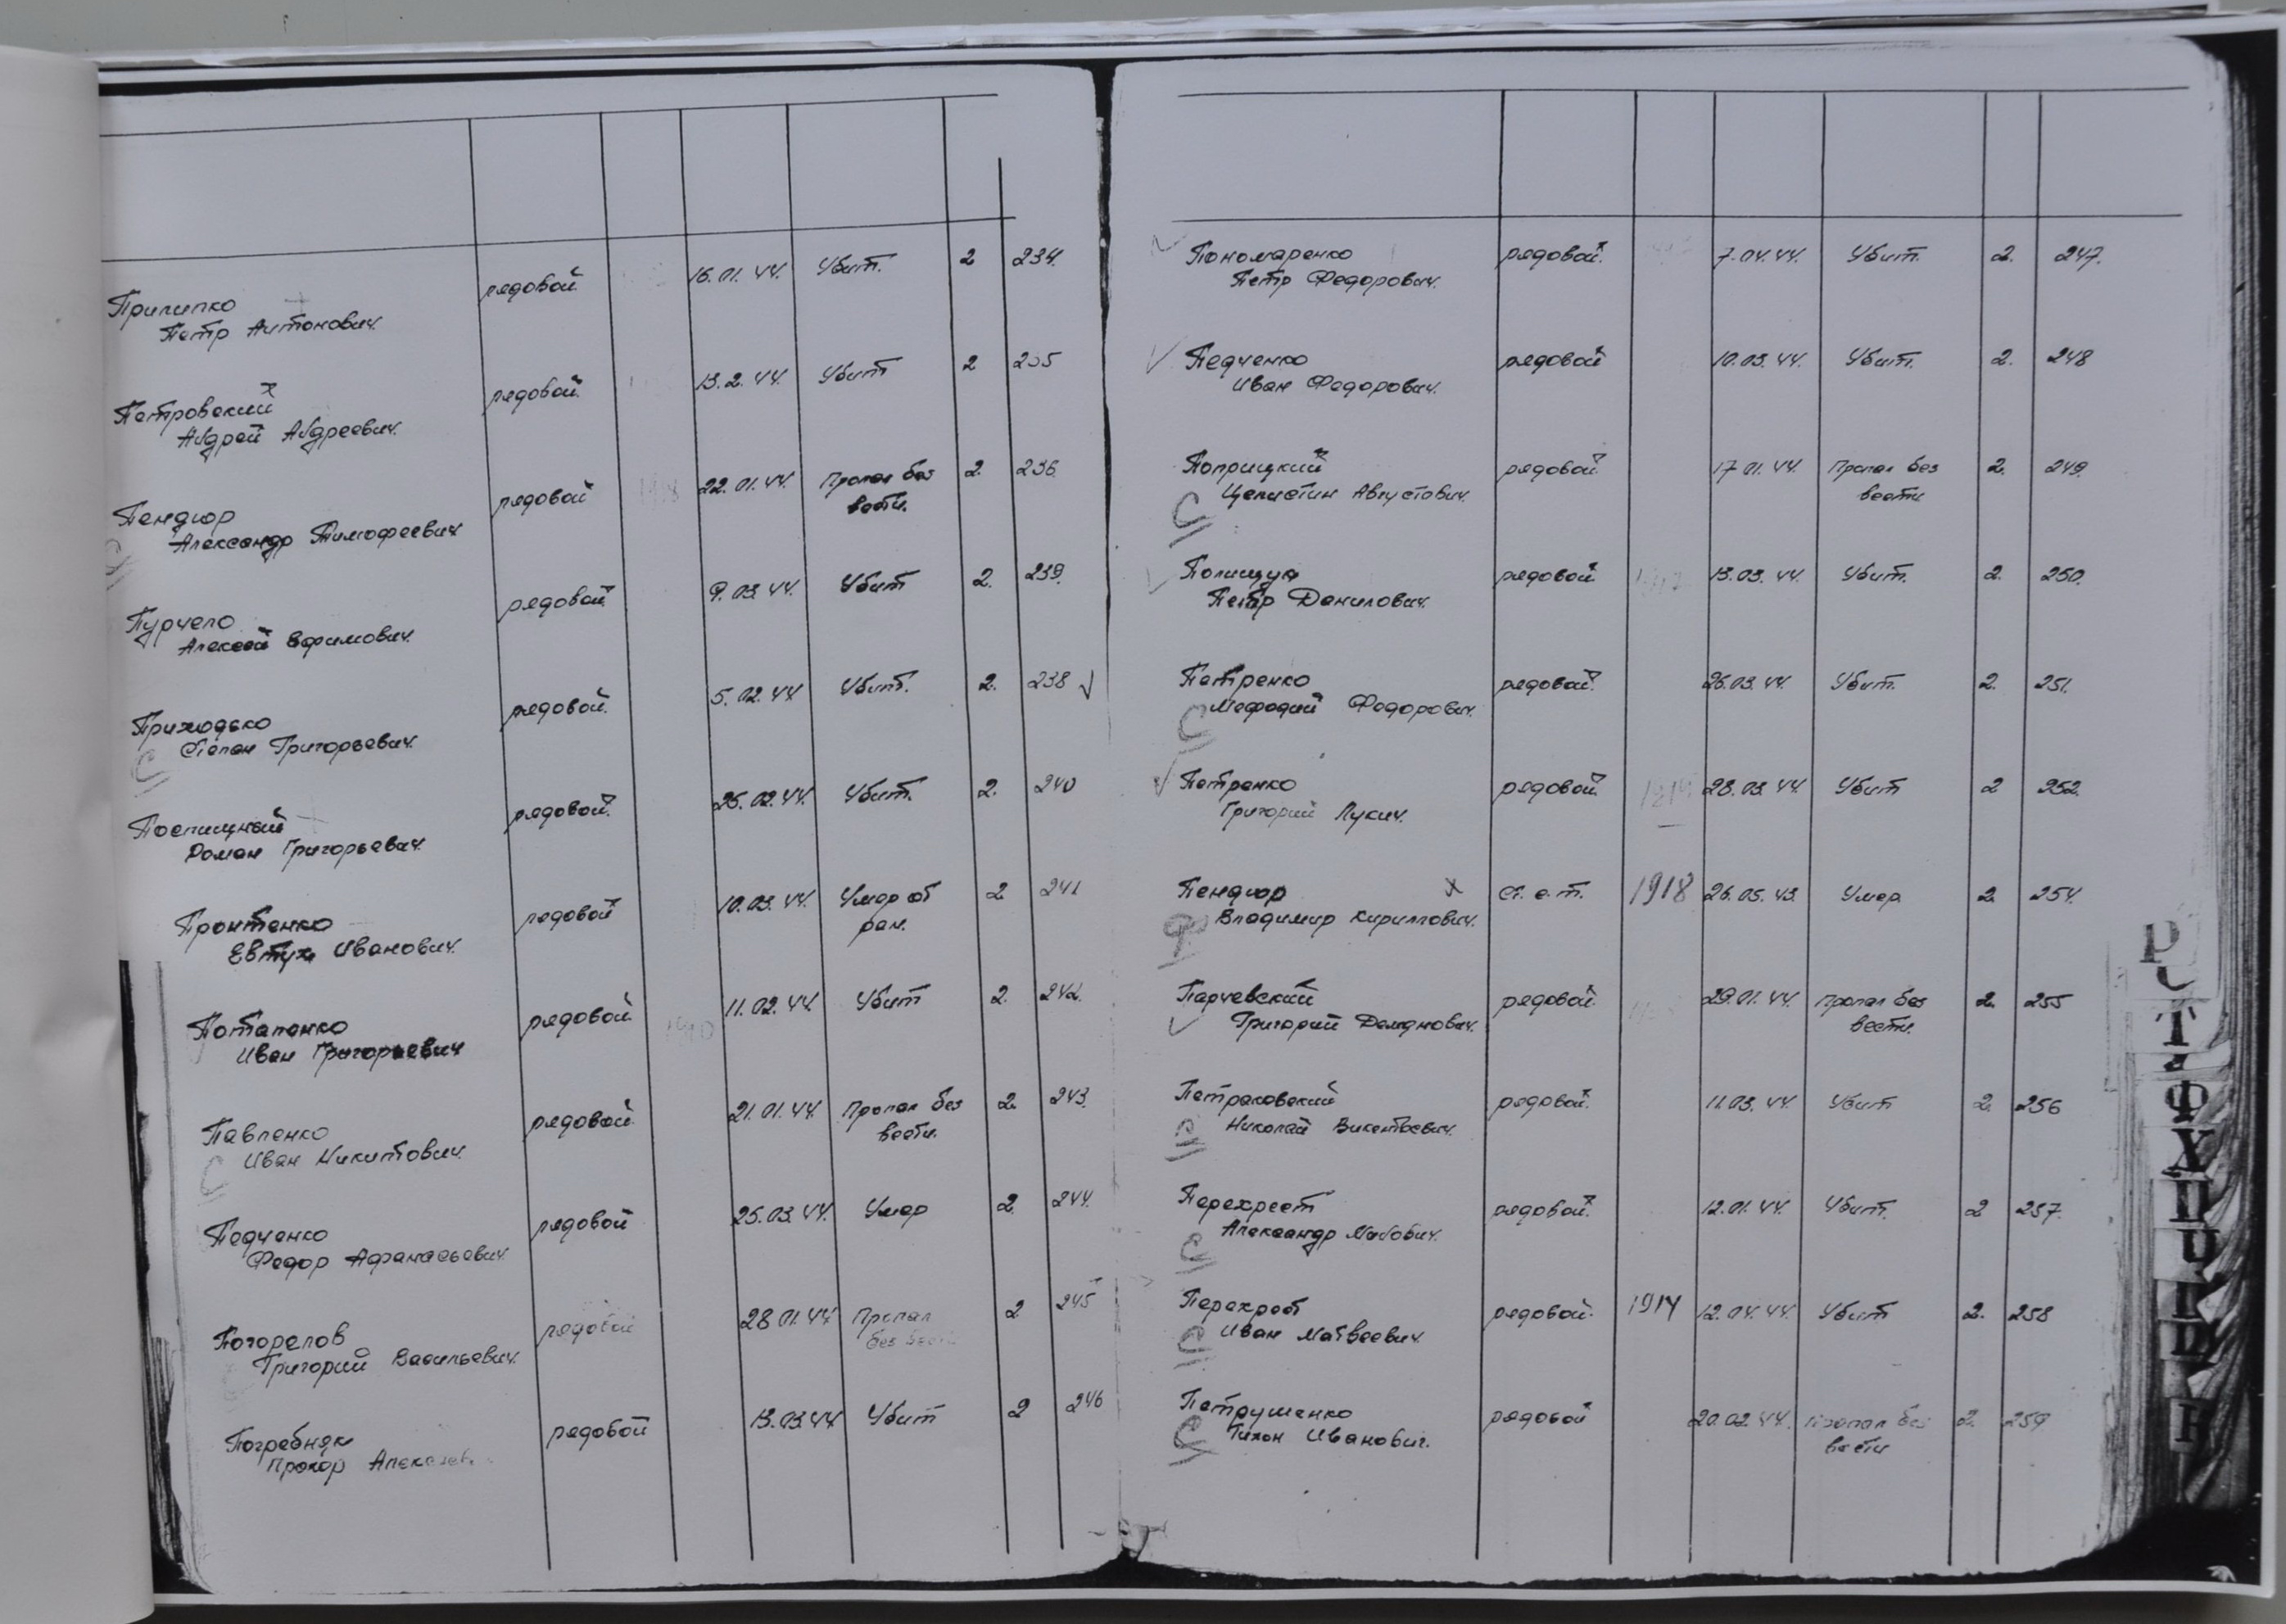 Прилипко рядовой 16.01.44. Убит. 2 234.
Петр Антонович.
Петровский рядовой. 13.2.44. Убит 2 235
Андрей Андреевич.
Пендюр рядовой 1918 22.01.44. Пропал без 2. 236.
Александр Тимофеевич вести.
Пурчело рядовой. 9.03.44. Убит 2. 239.
Алексей Ефимович.
Приходько рядовой. 5.02.44 Убит. 2. 238
Степан Григорьевич.
Поспишный рядовой. 25.02.44. Убит. 2. 240
Роман Григорьевич.
Пронтенко рядовой 10.03.44. Умер от 2 241
Евтух Иванович. ран.
Потапенко рядовой 11.02.44. Убит 2. 242.
Иван Григорьевич
Павленко рядовой. 21.01.44. Пропал без 2. 243.
Иван Никитович. вести.
Педченко рядовой 25.03.44. Умер 2. 244.
Федор Афанасьевич.
Погорелов рядовой 28.01.44 Пропал 2 245
Григорий Васильевич. без вести
Погребняк рядовой 13.03.44 Убит 2 246
Прокор
Пономаренко рядовой. 7.04.44. Убит. 2. 247.
Петр Федорович.
Педченко рядовой 10.03.44. Убит. 2. 248
Иван Федорович.
Поприцкий рядовой 17.01.44. Пропал без 2. 249.
Целистин Августович. вести
С
Полищук рядовой. 13.03.44. Убит. 2. 250.
Петр Данилович.
Петренко рядовой. 26.03.44. Убит. 2. 251.
Мефодий Федорович.
С
Петренко рядовой. 28.03.44. Убит 2 252.
Григорий Лукич.
Пендюр х ст. с-т. 1918 26.05.43. Умер. 2. 254.
Ф Владимир Кириллович.
Парчевский рядовой. 29.01.44. Пропал без 2. 255
Григорий Демянович. вести.
Петраковский рядовой. 11.03.44. Убит 2. 256
С Николай Викентьевич.
Перехрест рядовой. 12.01.44. Убит. 2 257.
С Александр
Перехрест рядовой. 1914 12.04.44. Убит 2. 258
С Иван Матвеевич.
Петрушенко рядовой 20.02.44. Пропал без 2. 259
С Тихон Иванович. вести
Р
С
Т
У
Ф
Х